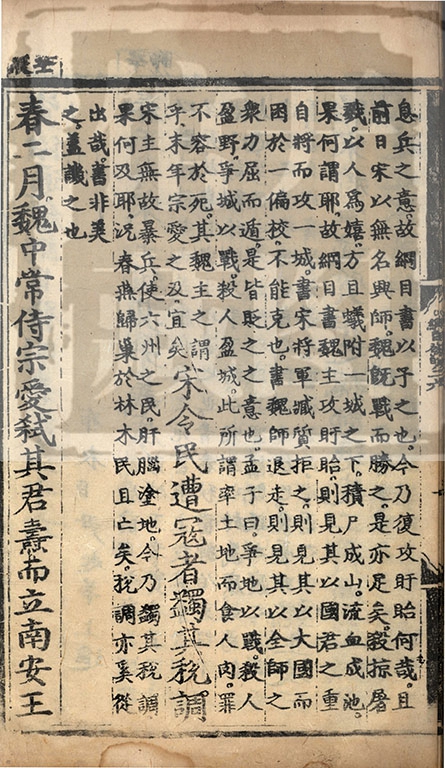 息兵之意故綱目書以予之也今乃復攻盱眙何哉且
前日宋以無名興師魏旣戰而勝之是亦足矣殺掠屠
戮以人爲嬉方且蟻附一城之下積尸成山流血成池
果何謂耶故綱目書魏主攻盱眙則見其以國君之重
自將而攻一城書宋將軍臧質拒之則見其以大國而
困於一偏校不能克也書魏師退走則見其以全師之
衆力屈而遁是皆貶之之意也孟子曰爭地以戰殺人
盈野爭城以戰殺人盈城此所謂率土地而食人肉罪
不容於死其魏主之謂
乎末年宗愛之及宜矣
宋令民遭寇者蠲其稅調
宋主無故暴兵使六州之民肝腦塗地今乃蠲其稅調
果何及耶况春燕歸巢於林木民且亡矣稅調亦奚從
出哉書非美
之盖譏之也
春二月魏中常侍宗愛弑其君燾而立南安王